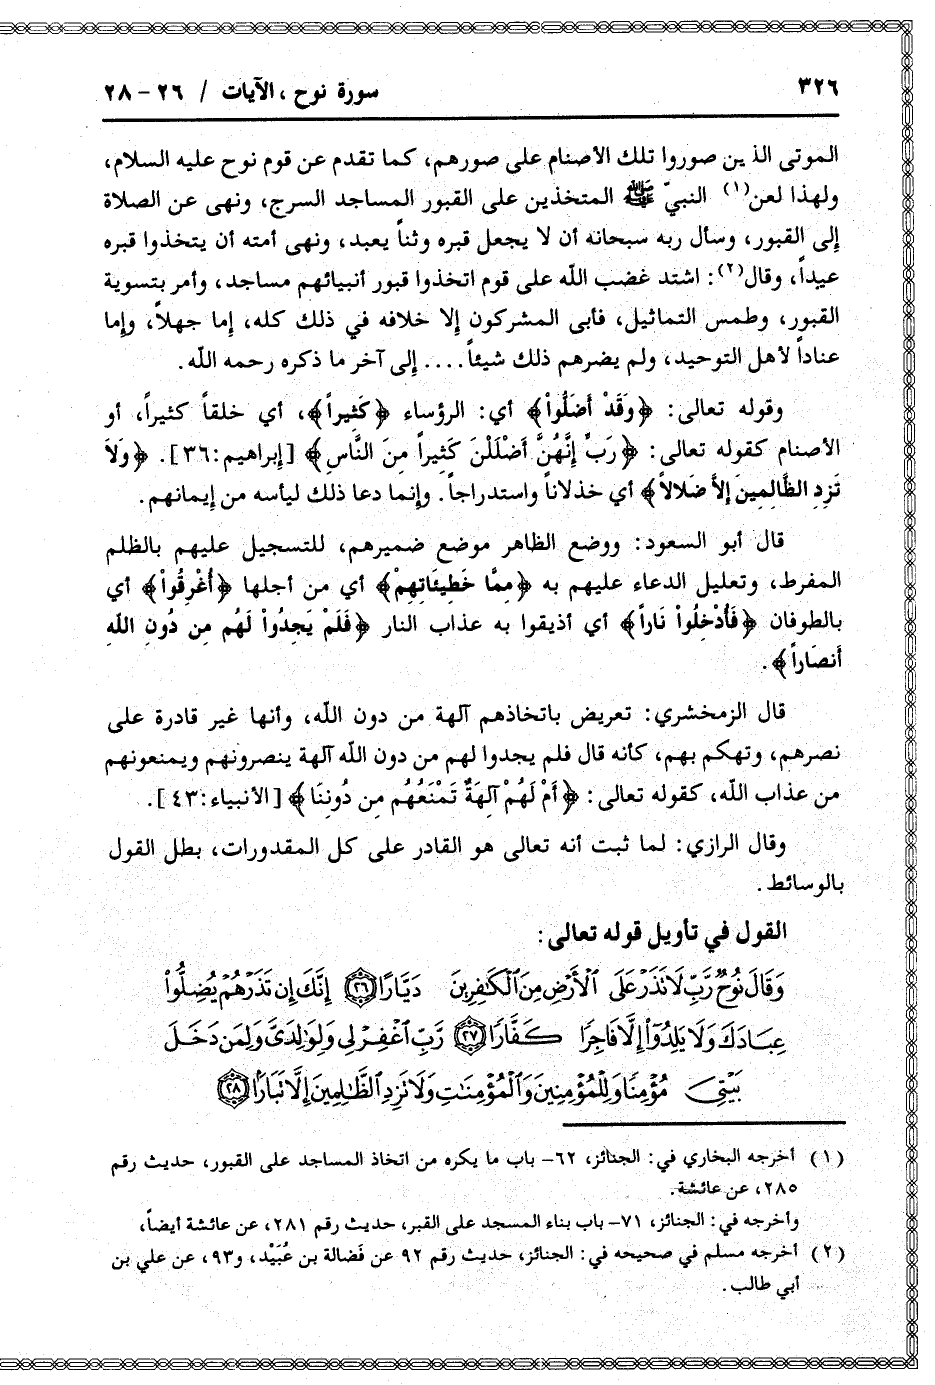 ٣٢٦
سورة نوح ، الآيات / ٢٦ - ٢٨
الموتى الذين صوروا تلك الأصنام على صورهم، كما تقدم عن قوم نوح عليه السلام،
ولهذا لعن(١) النبيّ ﷺ المتخذين على القبور المساجد السرج، ونهى عن الصلاة
إلى القبور، وسأل ربه سبحانه أن لا يجعل قبره وثناً يعبد، ونهى أمته أن يتخذوا قبره
عيداً، وقال(٢): اشتد غضب اللّه على قوم اتخذوا قبور أنبيائهم مساجد، وأمر بتسوية
القبور، وطمس التماثيل، فأبى المشركون إلا خلافه في ذلك كله، إما جهلاً، وإما
عناداً لأهل التوحيد، ولم يضرهم ذلك شيئاً.... إلى آخر ما ذكره رحمه اللّه.
وقوله تعالى: ﴿وَقَدْ أَضَلُّواْ﴾ أي: الرؤساء ﴿كَثِيراً﴾، أي خلقاً كثيراً، أو
الأصنام كقوله تعالى: ﴿رَبِّ إِنَّهُنَّ أَضْلَلْنَ كَثِيراً مِنَ النَّاسِ﴾ [إبراهيم:٣٦]. ﴿وَلَا
تَزِدِ الظَّالِمِينَ إِلاَّ ضَلالاً﴾ أي خذلاناً واستدراجاً. وإنما دعا ذلك ليأسه من إيمانهم.
قال أبو السعود: ووضع الظاهر موضع ضميرهم، للتسجيل عليهم بالظلم
المفرط، وتعليل الدعاء عليهم به ﴿مِمَّا خَطِيئَاتِهِمْ﴾ أي من أجلها ﴿أُغْرِقُواْ﴾ أي
بالطوفان ﴿فَأُدْخِلُواْ نَاراً﴾ أي أذيقوا به عذاب النار ﴿فَلَمْ يَجِدُواْ لَهُم مِن دُونِ اللَّهِ
أَنصَاراً﴾.
قال الزمخشري: تعريض باتخاذهم آلهة من دون اللّه، وأنها غير قادرة على
نصرهم، وتهكم بهم، كأنه قال فلم يجدوا لهم من دون اللّه آلهة ينصرونهم ويمنعونهم
من عذاب اللّه، كقوله تعالى: ﴿أَمْ لَهُمْ آلِهَةٌ تَمْنَعُهُم مِن دُونِنَا﴾ [الأنبياء:٤٣].
وقال الرازي: لما ثبت أنه تعالى هو القادر على كل المقدورات، بطل القول
بالوسائط.
القول في تأويل قوله تعالى:
وَقَالَ نُوحٌ رَّبِّ لَا تَذَرْ عَلَى ٱلْأَرْضِ مِنَ ٱلْكَٰفِرِينَ دَيَّارًا ۝٢٦ إِنَّكَ إِن تَذَرْهُمْ يُضِلُّوا۟
عِبَادَكَ وَلَا يَلِدُوٓا۟ إِلَّا فَاجِرًا كَفَّارًا ۝٢٧ رَّبِّ ٱغْفِرْ لِى وَلِوَٰلِدَىَّ وَلِمَن دَخَلَ
بَيْتِىَ مُؤْمِنًا وَلِلْمُؤْمِنِينَ وَٱلْمُؤْمِنَٰتِ وَلَا تَزِدِ ٱلظَّٰلِمِينَ إِلَّا تَبَارًا ۝٢٨
(١) أخرجه البخاري في: الجنائز، ٦٢- باب ما يكره من اتخاذ المساجد على القبور، حديث رقم
٢٨٥، عن عائشة.
وأخرجه في: الجنائز، ٧١- باب بناء المسجد على القبر، حديث رقم ٢٨١، عن عائشة أيضاً،
(٢) أخرجه مسلم في صحيحه في: الجنائز، حديث رقم ٩٢ عن فَضالة بن عُبَيْد، و٩٣، عن علي بن
أبي طالب.